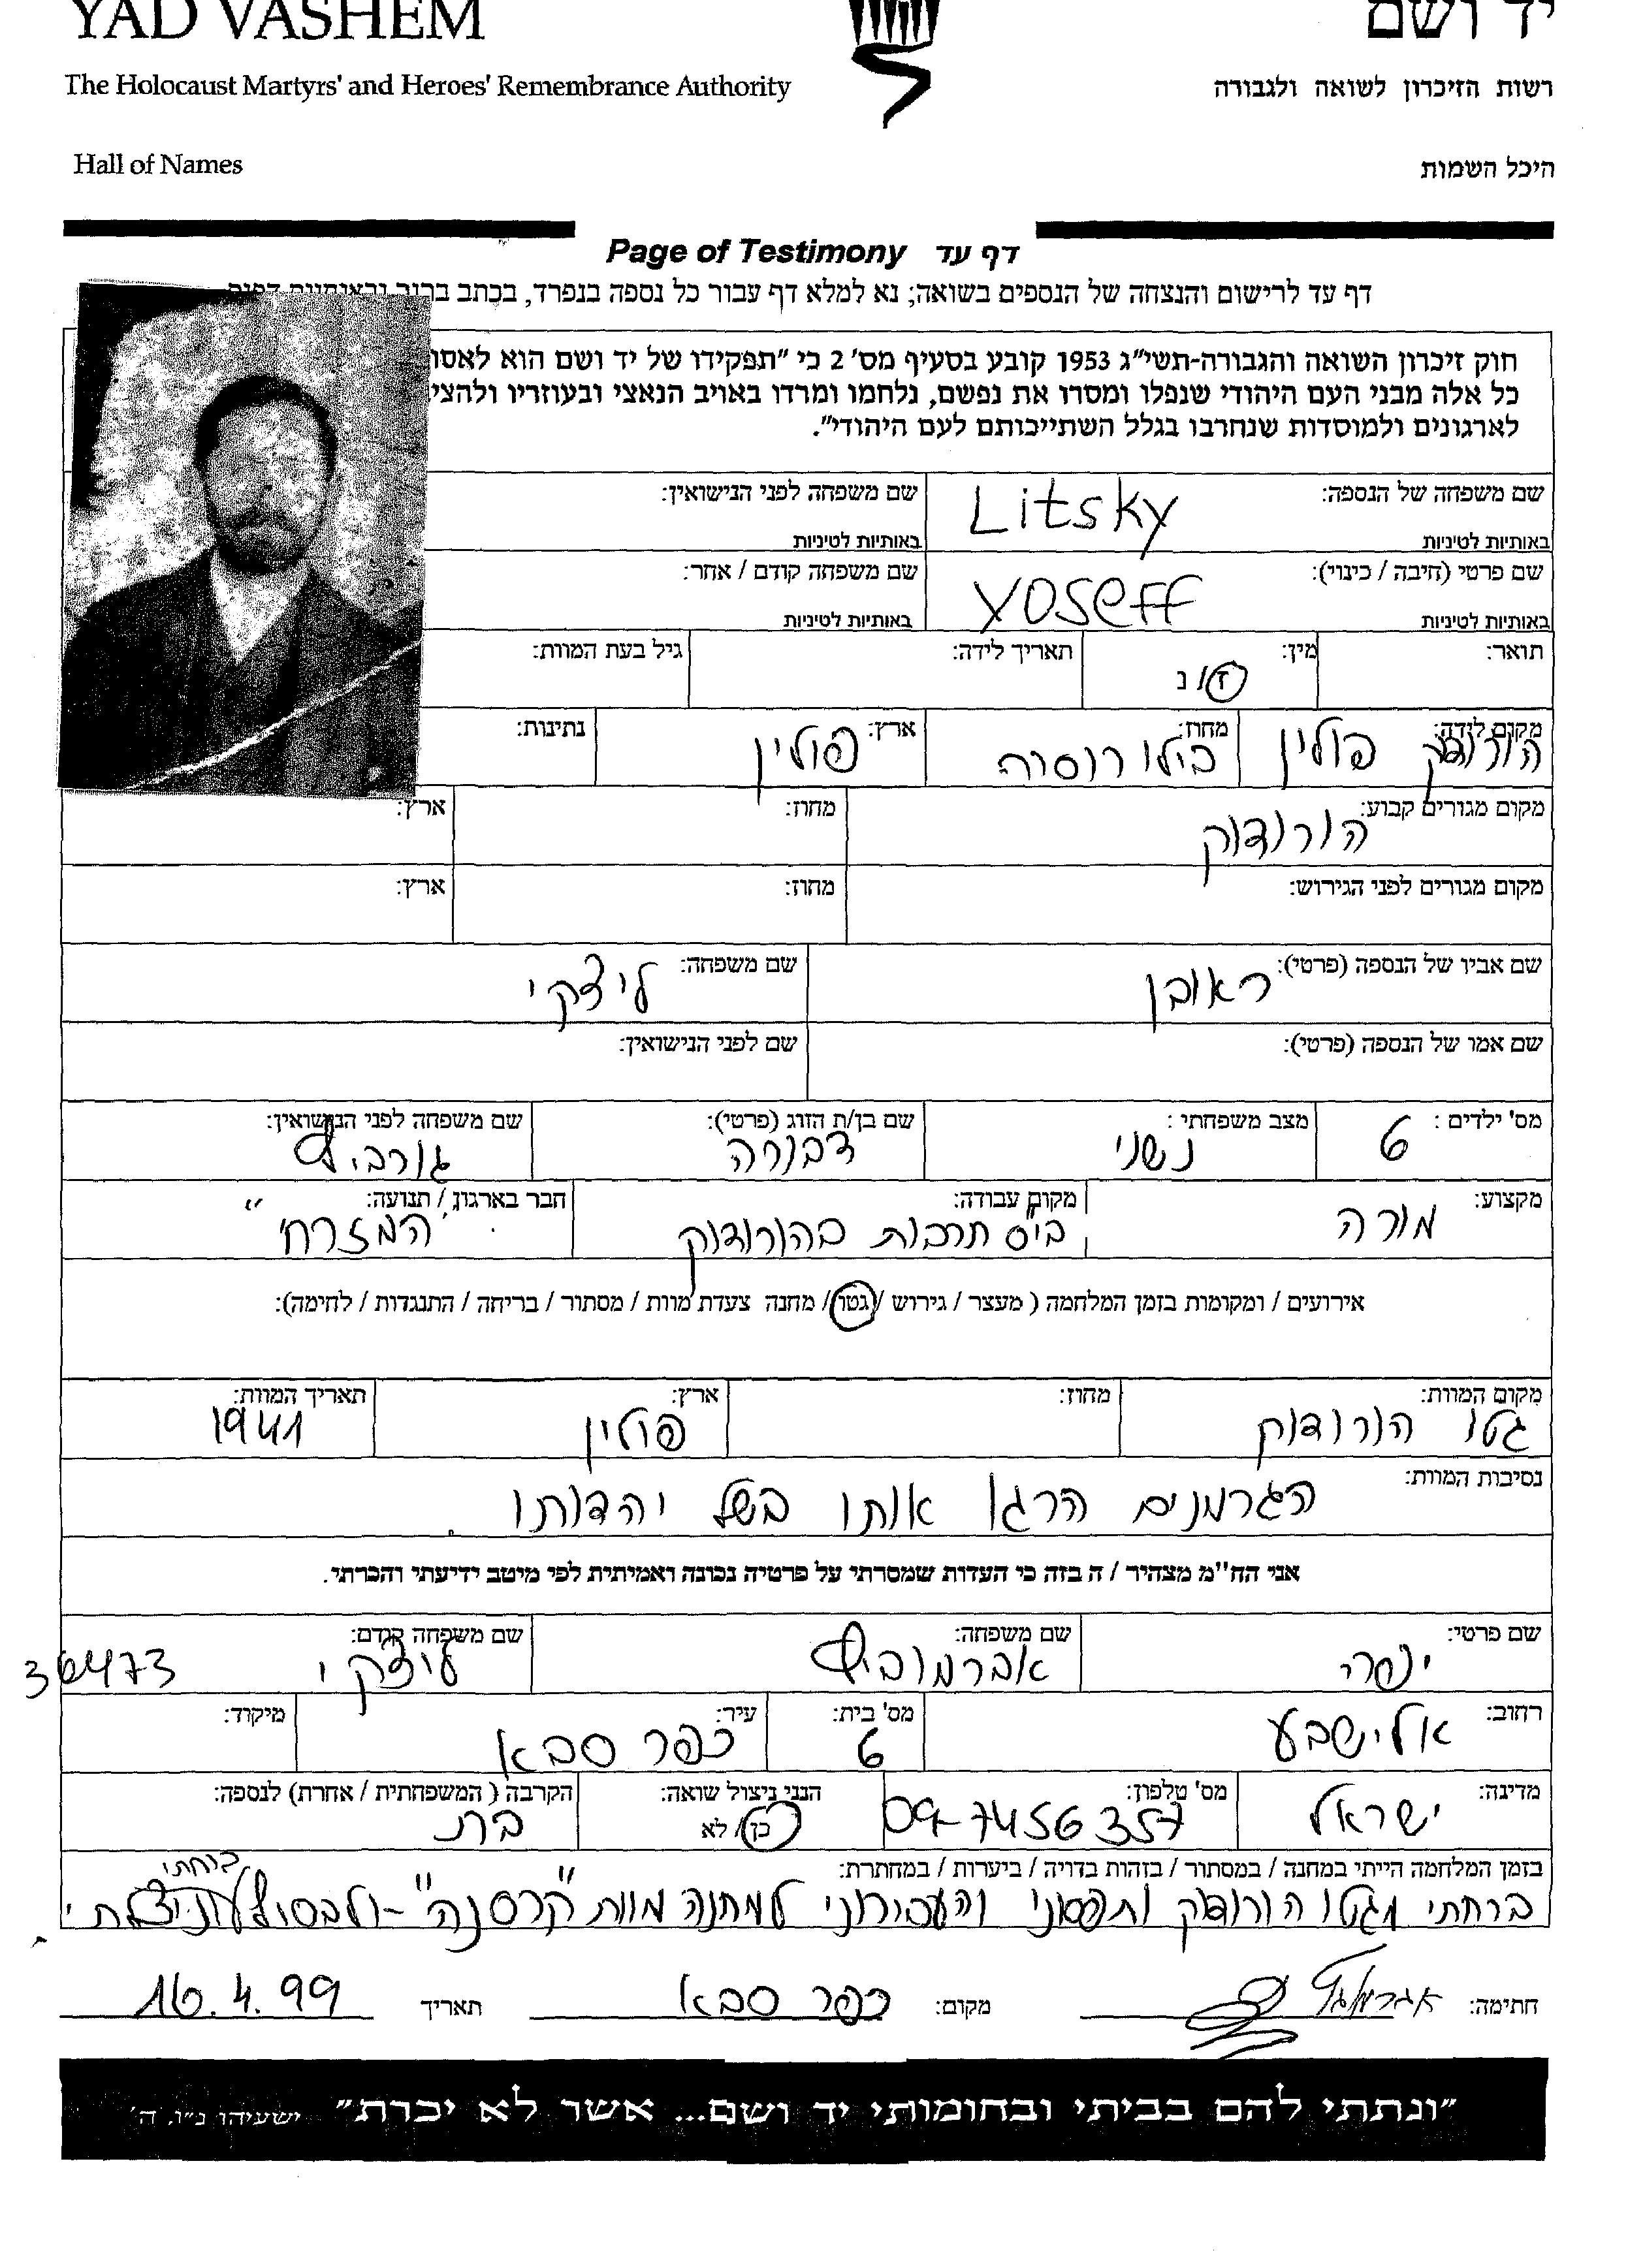 YAD VASHEM
יד ושם
The Holocaust Martyrs' and Heroes' Remembrance Authority
רשות הזיכרון לשואה ולגבורה
Hall of Names
היכל השמות
Page of Testimony דף עד
דף עד לרישום והנצחה של הנספים בשואה; נא למלא דף עבור כל נספה בנפרד, בכתב ברור ובאותיות דפוס
חוק זיכרון השואה והגבורה-תשי"ג 1953 קובע בסעיף מס' 2 כי "תפקידו של יד ושם הוא לאסו
כל אלה מבני העם היהודי שנפלו ומסרו את נפשם, נלחמו ומרדו באויב הנאצי ובעוזריו ולהצי
לארגונים ולמוסדות שנחרבו בגלל השתייכותם לעם היהודי".
שם משפחה של הנספה: Litsky שם משפחה לפני הנישואין:
באותיות לטיניות באותיות לטיניות
שם פרטי (חיבה / כינוי): Yoseff שם משפחה קודם / אחר:
באותיות לטיניות באותיות לטיניות
תואר: מין: ז/נ תאריך לידה: גיל בעת המוות:
מקום לידה: הורודוק פולין מחוז: בילו רוסיה ארץ: פולין נתינות:
מקום מגורים קבוע: הורודוק מחוז: ארץ:
מקום מגורים לפני הגירוש: מחוז: ארץ:
שם אביו של הנספה (פרטי): ראובן שם משפחה: ליצקי
שם אמו של הנספה (פרטי): שם לפני הנישואין:
מס' ילדים: 6 מצב משפחתי: נשוי שם בן/ת הזוג (פרטי): דבורה שם משפחה לפני הנישואין: גורביץ
מקצוע: מורה מקום עבודה: בי"ס תרבות בהורודוק חבר בארגון / תנועה: "המזרחי"
אירועים / ומקומות בזמן המלחמה ( מעצר / גירוש / גטו / מחנה צעדת מוות / מסתור / בריחה / התנגדות / לחימה):
מקום המוות: גטו הורודוק מחוז: ארץ: פולין תאריך המוות: 1941
נסיבות המוות: הגרמנים הרגו אותו בשל יהדותו.
אני הח"מ מצהיר / ה בזה כי העדות שמסרתי על פרטיה נכונה ואמיתית לפי מיטב ידיעתי והכרתי.
שם פרטי: יפה שם משפחה: אברמוביץ שם משפחה קודם: ליצקי 36473
רחוב: אלישבע מס' בית: 6 עיר: כפר סבא מיקוד:
מדינה: ישראל מס' טלפון: 09-7456357 הנני ניצול שואה: כן / לא הקרבה ( המשפחתית / אחרת) לנספה: בת
בזמן המלחמה הייתי במחנה / במסתור / בזהות בדויה / ביערות / במחתרת:
ברחתי מגטו הורודוק ותפסוני והעבירוני למחנה מוות "קרסנה" - ולבסוף ברחתי וניצלתי
חתימה: אברמוביץ מקום: כפר סבא תאריך 16.4.99
"ונתתי להם בביתי ובחומותי יד ושם... אשר לא יכרת" ישעיהו נ"ו, ה'